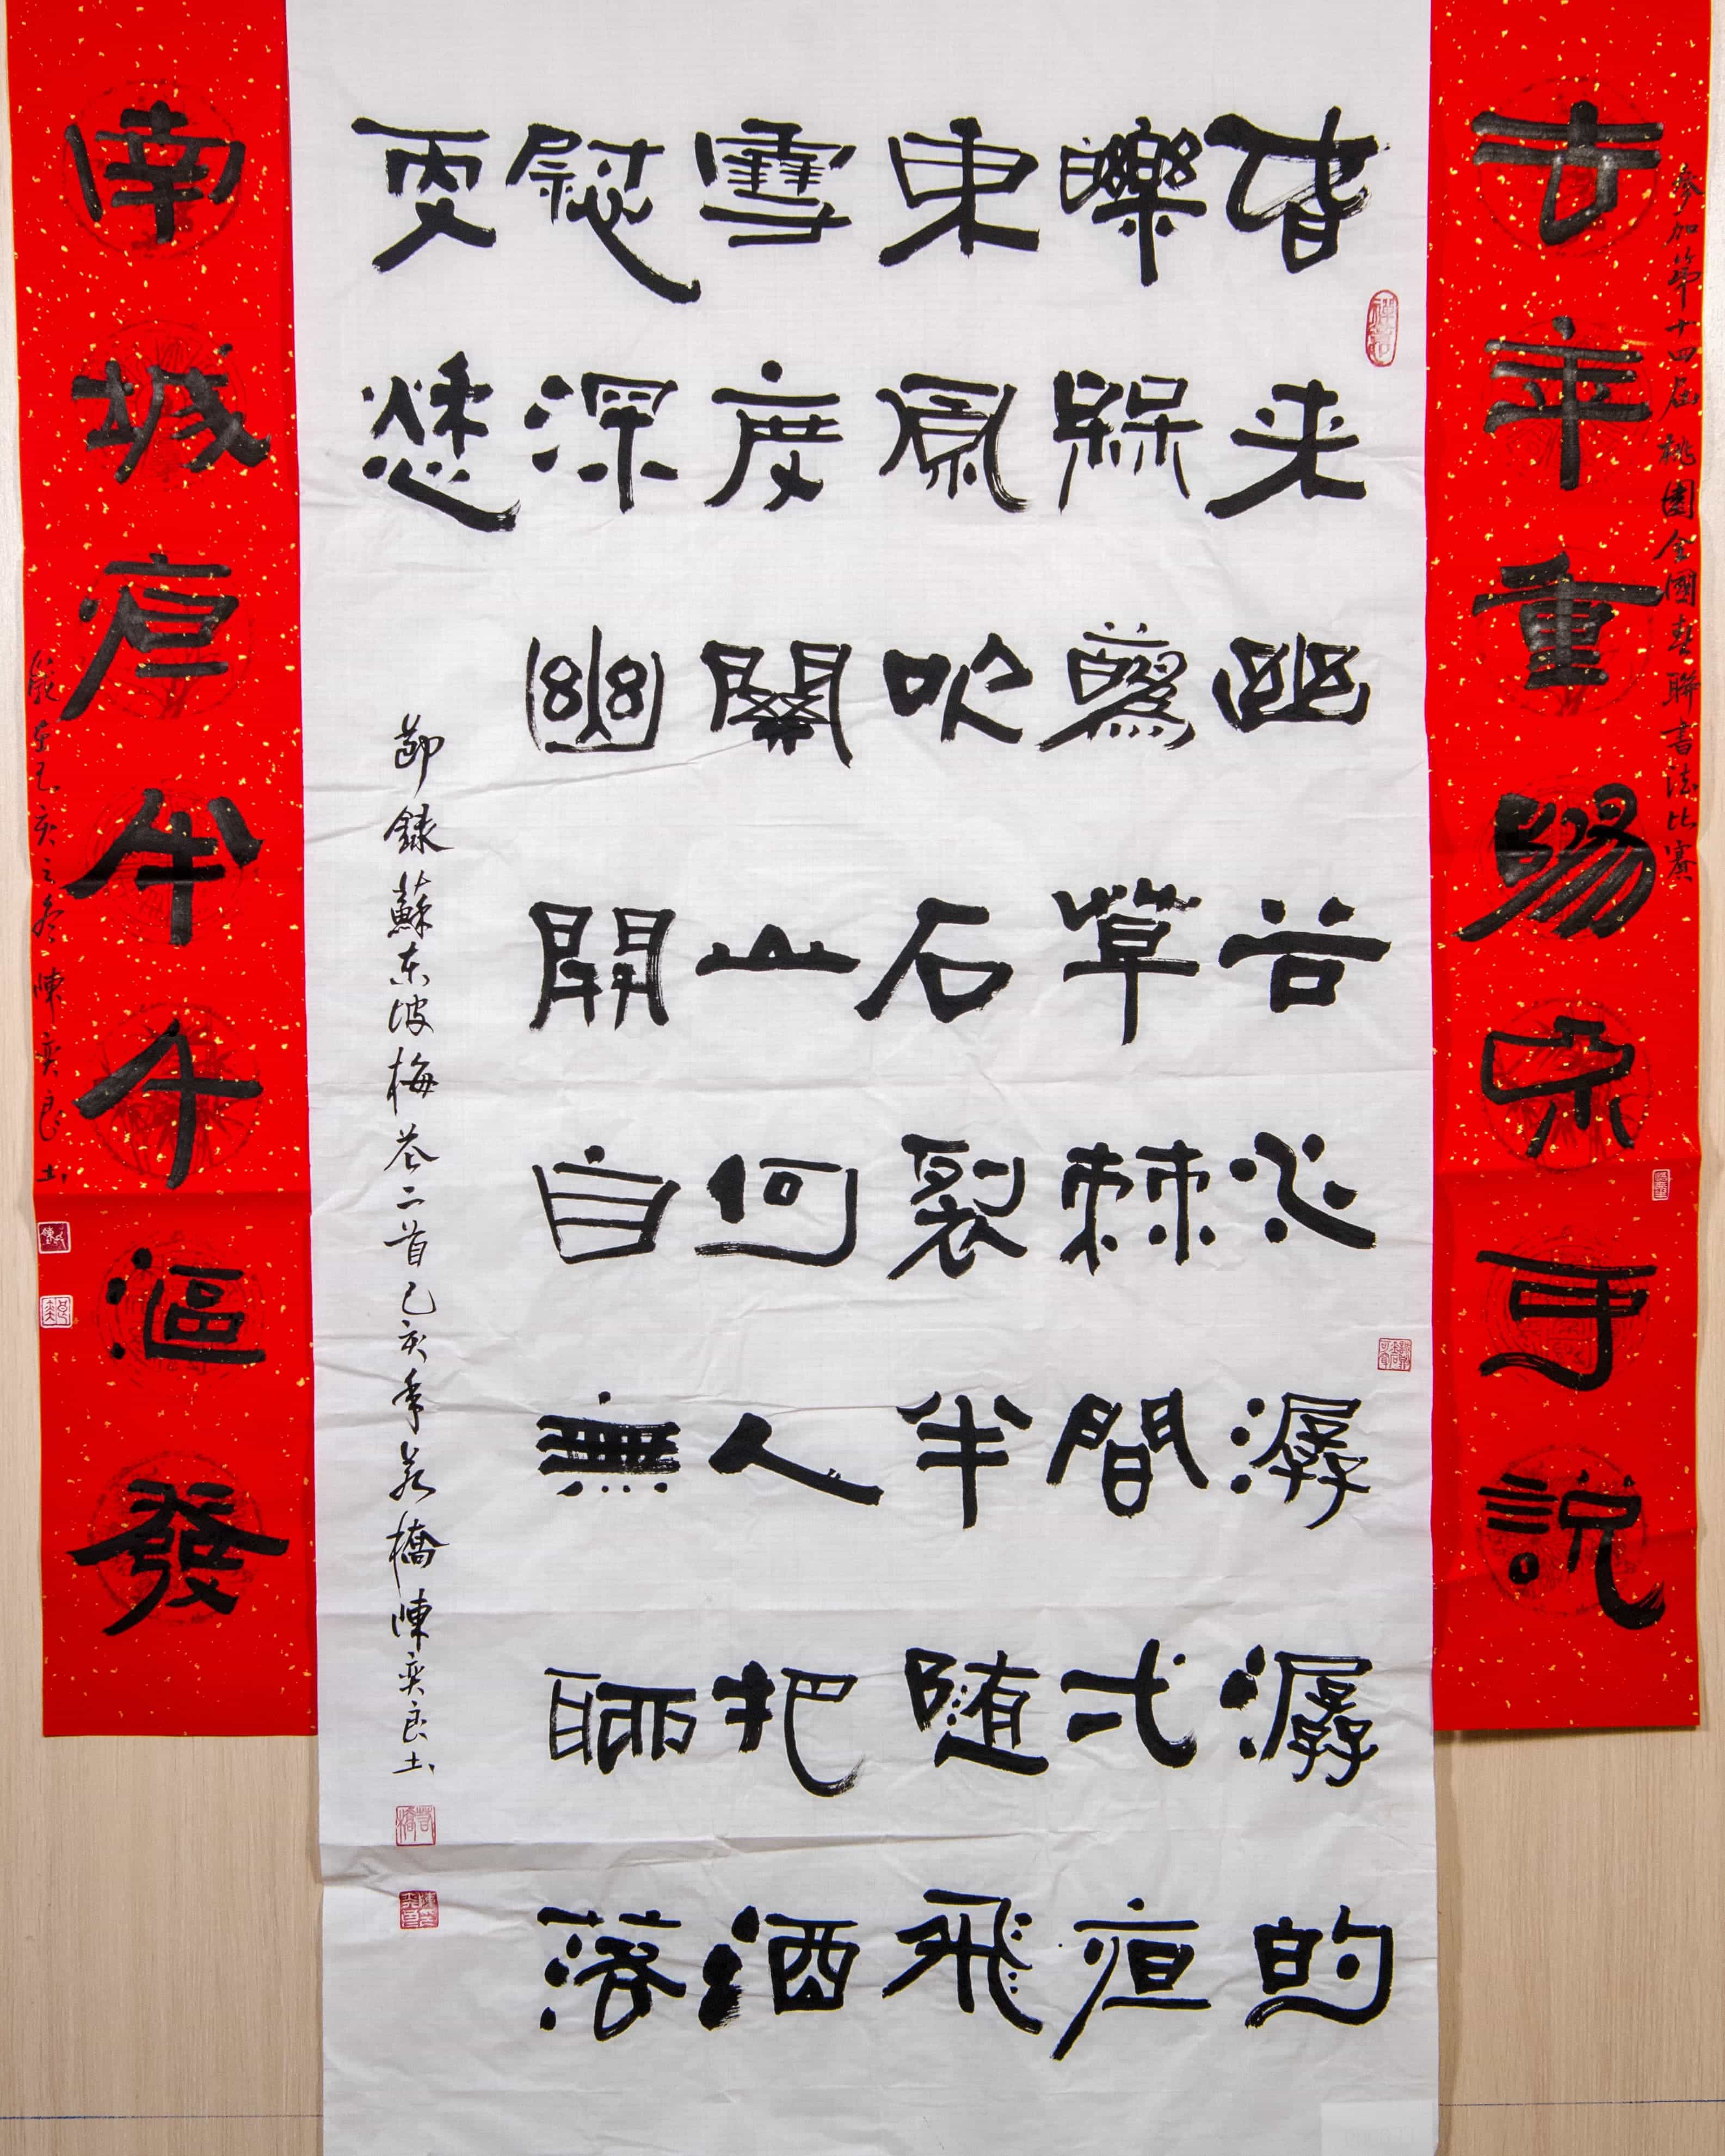 參加第十四屆桃園全國春聯書法比賽
去年重陽不可說
春来幽谷水潺潺的
皪梅花草棘間弌夜
東風吹石裂半随飛
雪度關山何人把酒
慰深幽開自無聊落
更愁
節錄蘇東坡梅花二首己亥年若橋陳奕良
南城夜半千漚發
歲在己亥之冬陳奕良